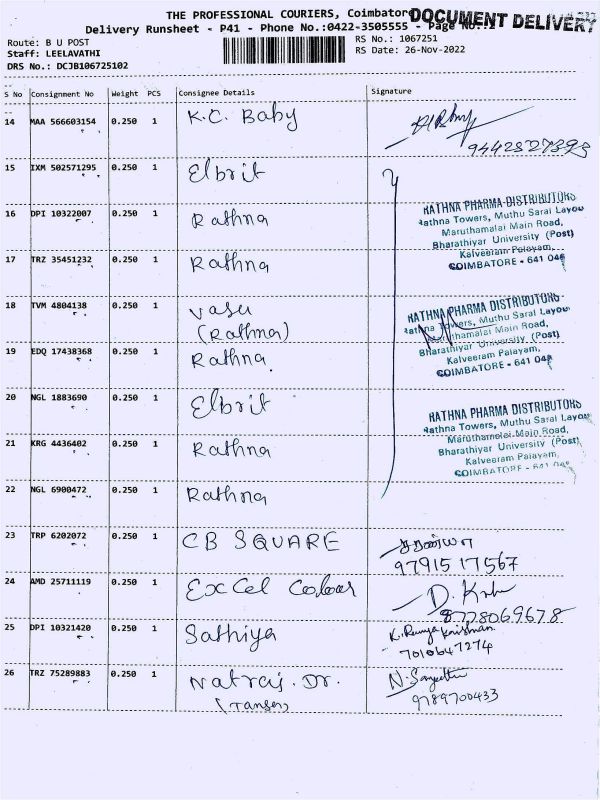 THE PROFESSIONAL COURIERS, Coimbator
DOCUMENT DELIVERY
Delivery Runsheet - P41 - Phone No.:0422-3505555 - Page No.:
Route: B U POST
RS No.: 1067251
Staff: LEELAVATHI
RS Date: 26-Nov-2022
DRS No.: DCJB106725102
S No Consignment No Weight PCS Consignee Details Signature
14 MAA 566603154 0.250 1 K.C. Baby
9442327393
15 IXM 502571295 0.250 1 Elbrit
16 DPI 10322007 0.250 1 Rathna
RATHNA PHARMA DISTRIBUTORS
Rathna Towers, Muthu Sarai Layou
Maruthamalai Main Road,
Bharathiyar University (Post)
Kalveeram Palayam,
COIMBATORE - 641 046
17 TRZ 35451232 0.250 1 Rathna
18 TVM 4804138 0.250 1 Vasu
(Rathna)
RATHNA PHARMA DISTRIBUTORS
Rathna Towers, Muthu Sarai Layou
Maruthamalai Main Road,
Bharathiyar University (Post)
Kalveeram Palayam,
COIMBATORE - 641 046
19 EDQ 17438368 0.250 1 Rathna.
20 NGL 1883690 0.250 1 Elbrit
RATHNA PHARMA DISTRIBUTORS
Rathna Towers, Muthu Sarai Layou
Maruthamalai Main Road,
Bharathiyar University (Post)
Kalveeram Palayam,
COIMBATORE - 641 046
21 KRG 4436402 0.250 1 Rathna
22 NGL 6900472 0.250 1 Rathna
23 TRP 6202072 0.250 1 CB SQUARE சரண்யா
97915 17567
24 AMD 25711119 0.250 1 Excel Colour
8778069678
25 DPI 10321420 0.250 1 Sathiya K. Ramya Krishnan
7010647274
26 TRZ 75289883 0.250 1 Natraj. Dr. N. Sangeetha
(Tansen) 9789700433